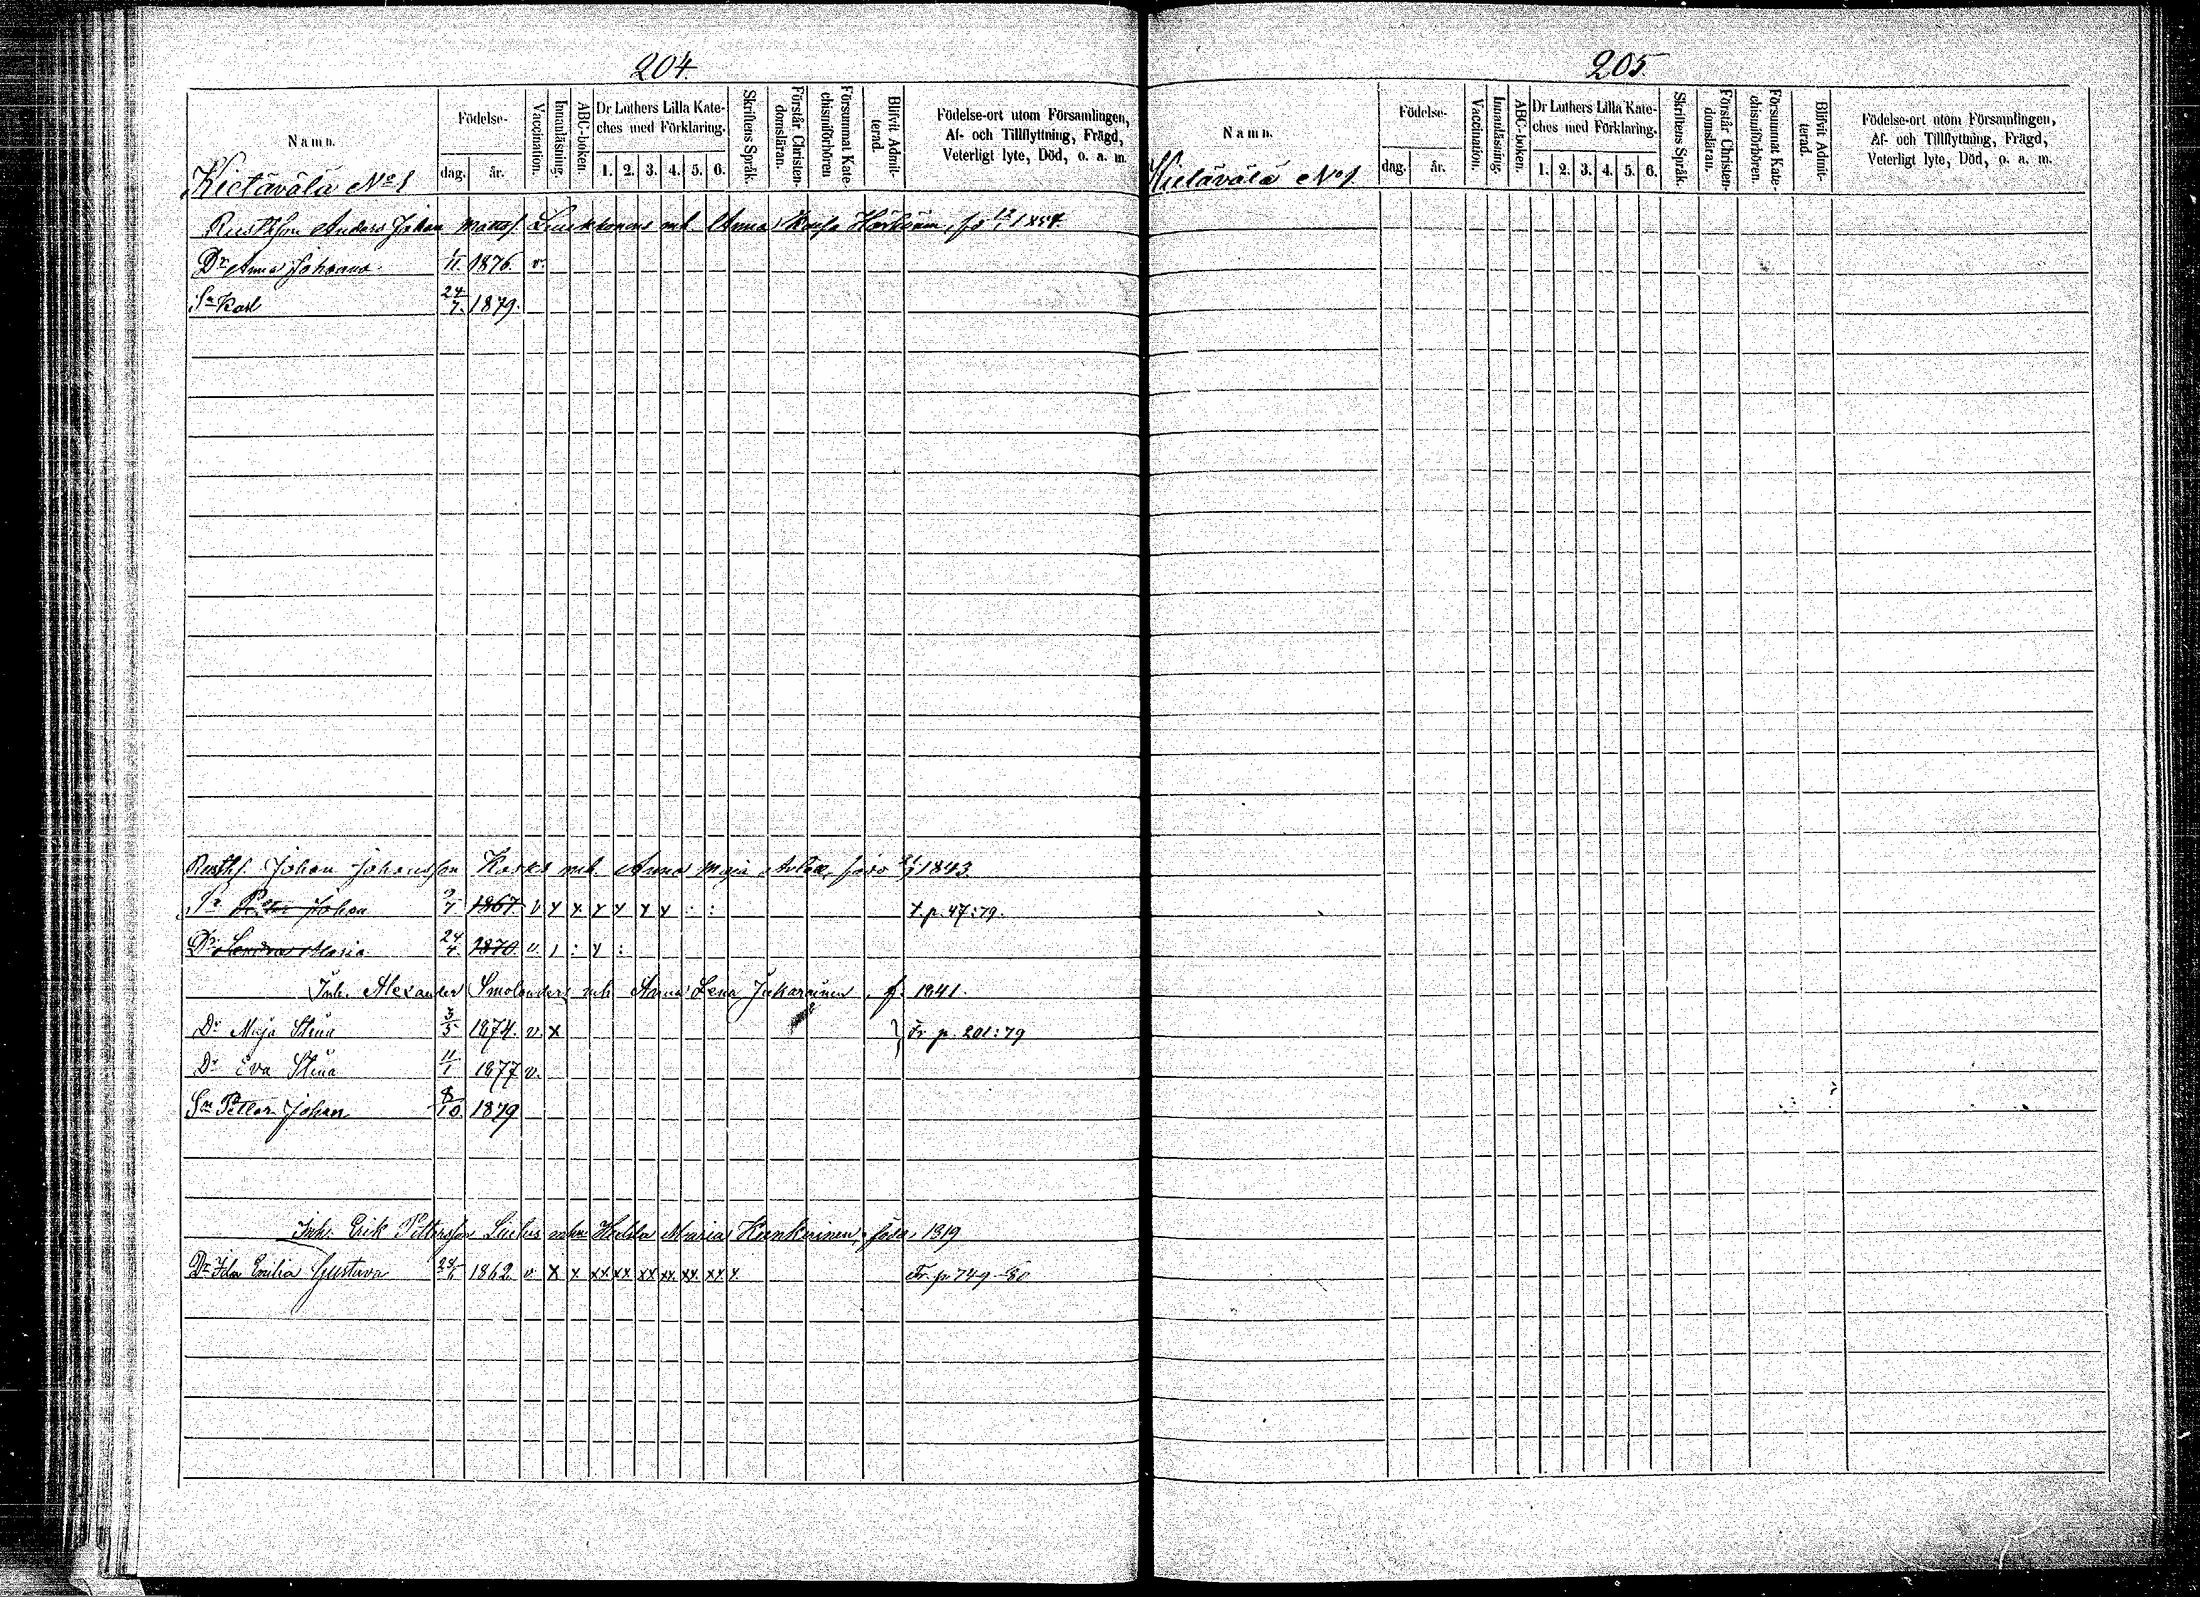 204.
Namn.
Födelse-
dag. år.
Vaccination.
Innanläsning.
ABC-boken.
Dr Luthers Lilla Kate-
ches med Förklaring.
1. 2. 3. 4. 5. 6.
Skriftens Språk.
Förstår Christen-
domsläran.
Försummat Kate-
chismiförhören
Blifvit Admit-
terad.
Födelse-ort utom Församlingen,
Af- och Tillflyttning, Frägd,
Veterligt lyte, Död, o. a. m.
Kietävälä No 1
Rusthson Anders Johan Matts. mh Anna Kaisa fö 12/1 1854.
Dr Anna Johanna 1/11 1876. v.
Sn Karl 24/7. 1879.
Rusths. Johan Johansson Koski mh. Anna Maja född 1843.
Sn Petter Johan 2/7 1867. v y x y y y y : : t. p. 47:79.
Dr Maria 24/4. 1870. v. 1 : y :
Inh. Alexander Smolander mh Anna Lena f. 1841.
Dr Maja Stina 3/5 1874. v. x } Fr p. 201:79
Dr Eva Stina 11/1 1877 v.
Sn Petter Johan 8/10 1879
Inh. Erik Pettersson mhu Hedda Maria Kunkurinen, föda, 1819
Dr Ida Emilia Gustava 1862. v. x x xx xx xx xx xx. xx x. Fr. p. 749-80
205.
Namn.
Födelse-
dag. år.
Vaccination.
Innanläsning.
ABC-boken.
Dr Luthers Lilla Kate-
ches med Förklaring.
1. 2. 3. 4. 5. 6.
Skriftens Språk.
Förstår Christen-
domsläran.
Försummat Kate-
chismiförhören.
Blifvit Admit-
terad.
Födelse-ort utom Församlingen,
Af- och Tillflyttning, Frägd,
Veterligt lyte, Död, o. a. m.
Kietävälä No 1.